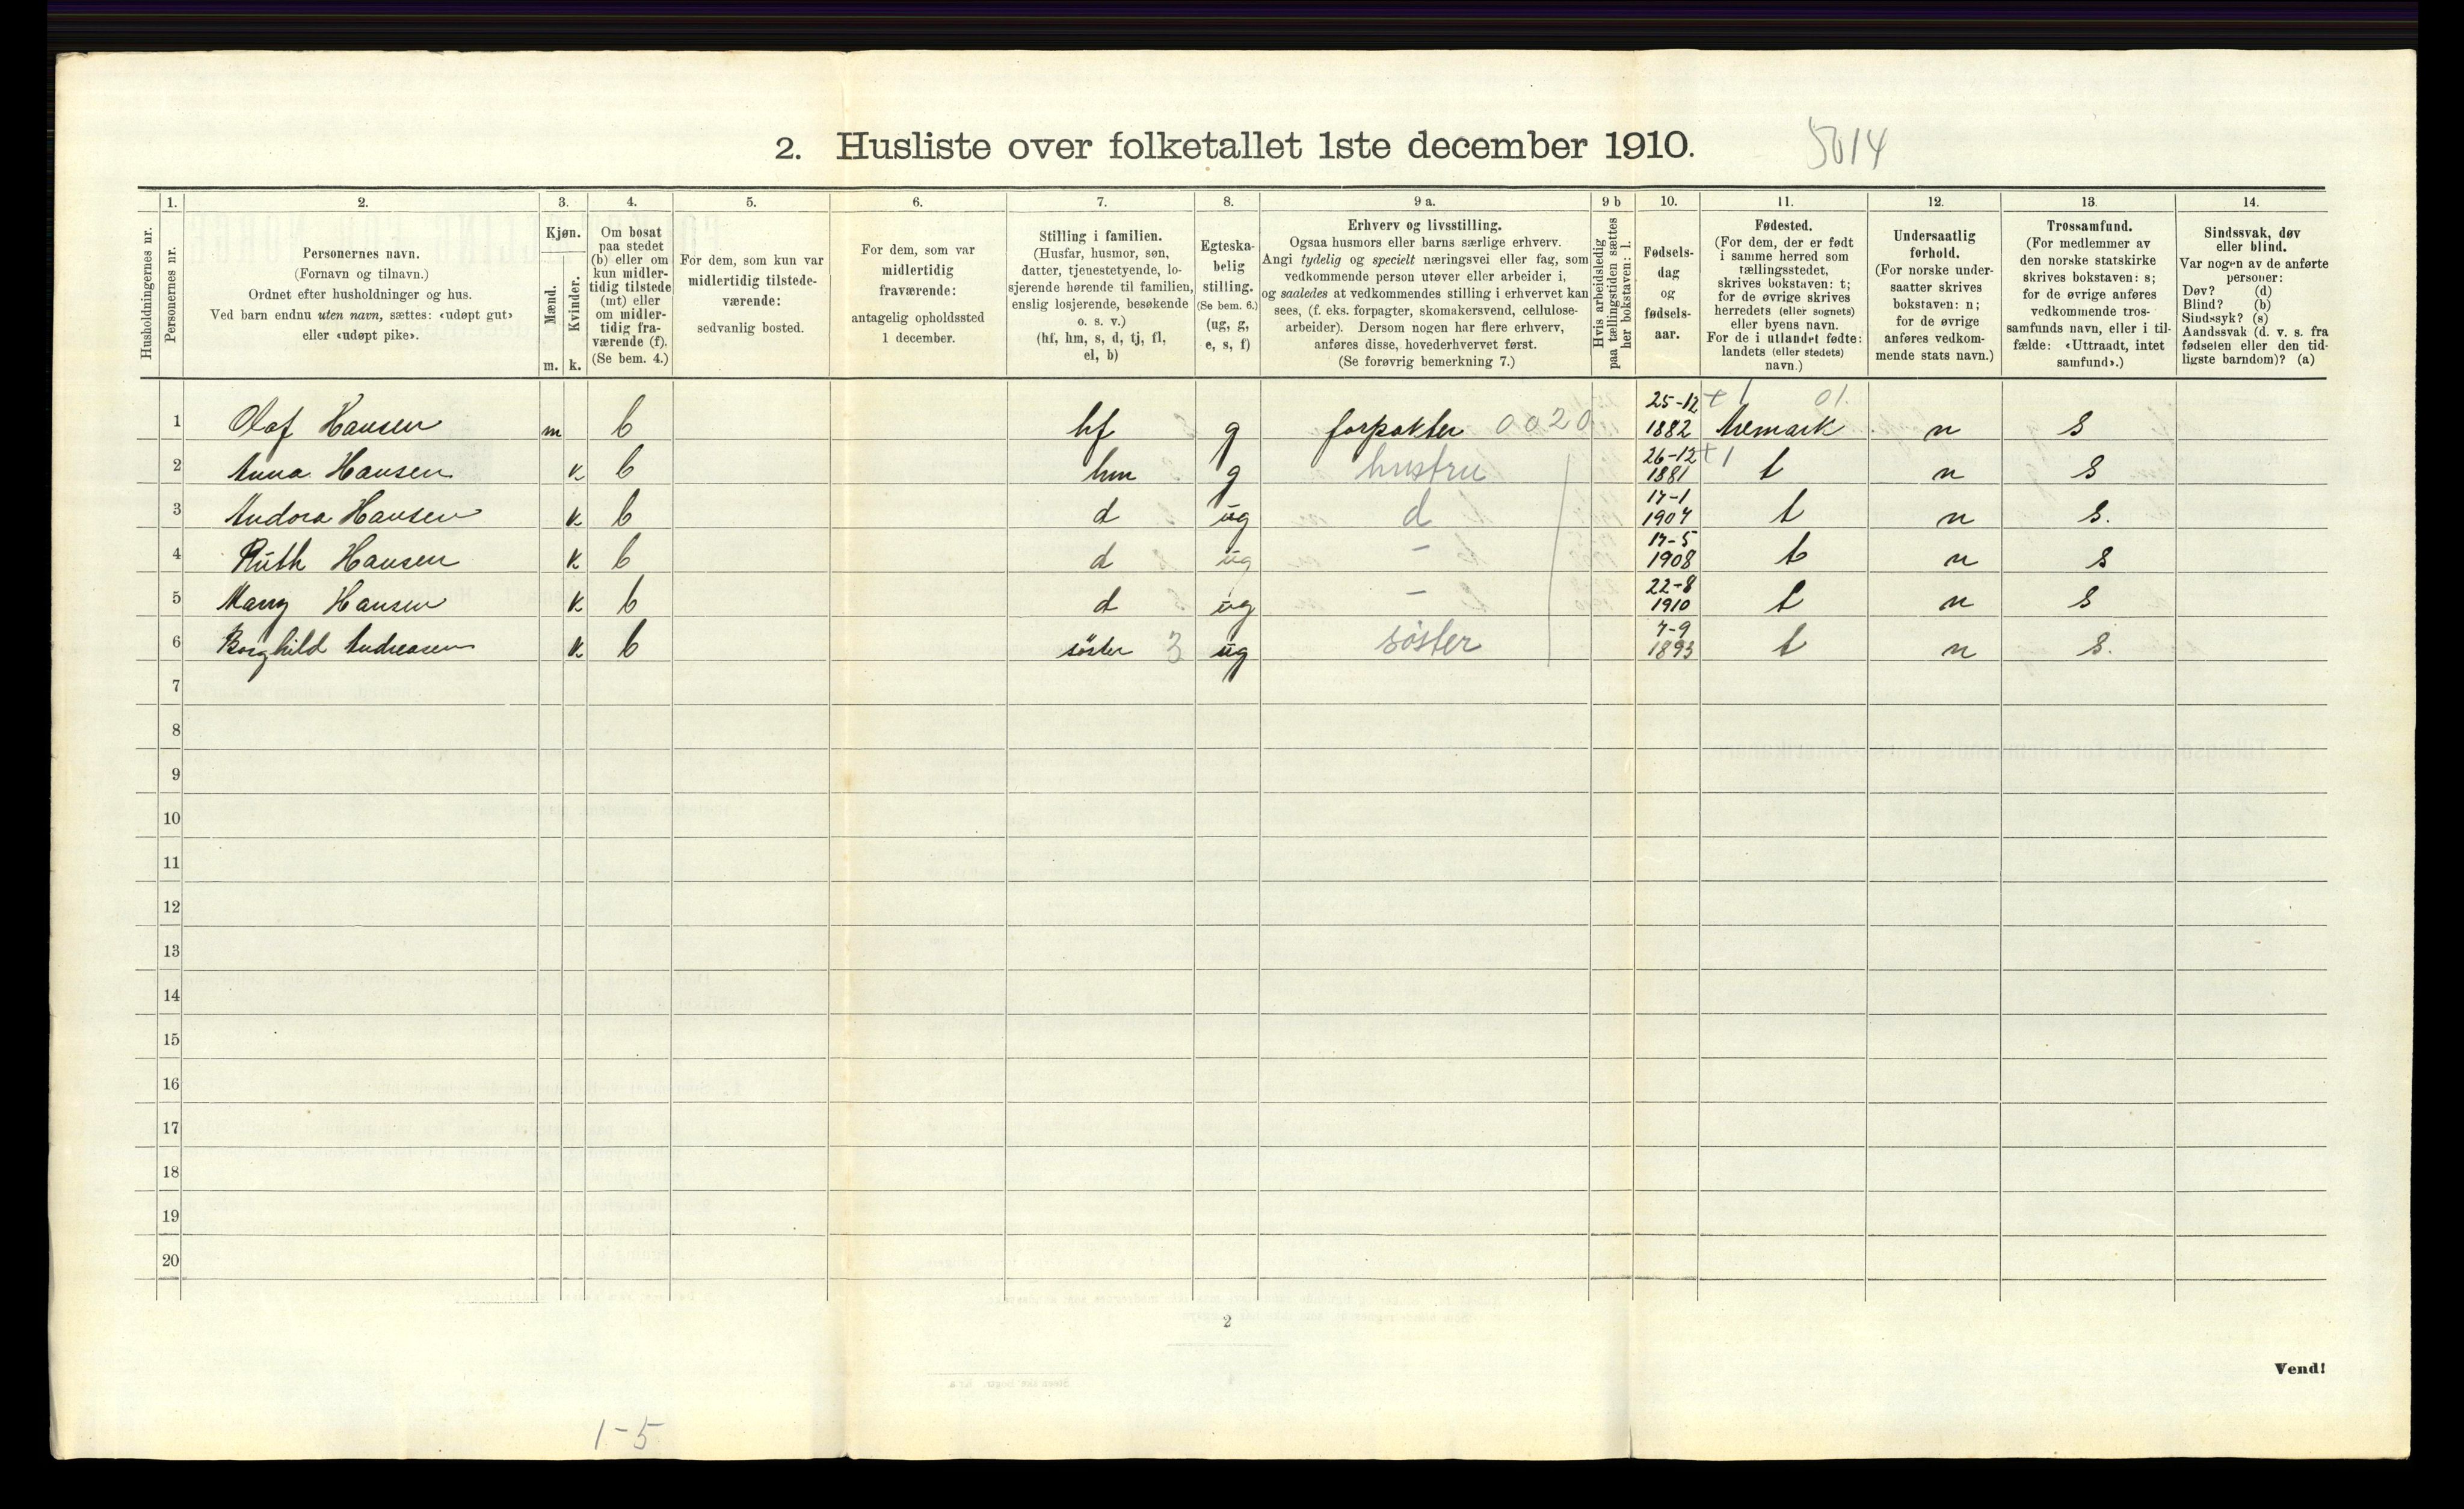 2. Husliste over folketallet 1ste december 1910. 5014
Husholdningernes nr.
1. Personernes nr.
2. Personernes navn.
(Fornavn og tilnavn.)
Ordnet efter husholdninger og hus.
Ved barn endnu uten navn, sættes: «udøpt gut»
eller «udøpt pike».
3. Kjøn.
Mænd. m.
Kvinder. k.
4. Om bosat
paa stedet
(b) eller om
kun midler-
tidig tilstede
(mt) eller
om midler-
tidig fra-
værende (f).
(Se bem. 4.)
5. For dem, som kun var
midlertidig tilstede-
værende:
sedvanlig bosted.
6. For dem, som var
midlertidig
fraværende:
antagelig opholdssted
1 december.
7. Stilling i familien.
(Husfar, husmor, søn,
datter, tjenestetyende, lo-
sjerende hørende til familien,
enslig losjerende, besøkende
o. s. v.)
(hf, hm, s, d, tj, fl,
el, b)
8. Egteska-
belig
stilling.
(Se bem. 6.)
(ug, g,
e, s, f)
9 a. Erhverv og livsstilling.
Ogsaa husmors eller barns særlige erhverv.
Angi tydelig og specielt næringsvei eller fag, som
vedkommende person utøver eller arbeider i,
og saaledes at vedkommendes stilling i erhvervet kan
sees, (f. eks. forpagter, skomakersvend, cellulose-
arbeider). Dersom nogen har flere erhverv,
anføres disse, hovederhvervet først.
(Se forøvrig bemerkning 7.)
9 b Hvis arbeidsledig
paa tællingstiden sættes
her bokstaven: l.
10. Fødsels-
dag
og
fødsels-
aar.
11. Fødested.
(For dem, der er født
i samme herred som
tællingsstedet,
skrives bokstaven: t;
for de øvrige skrives
herredets (eller sognets)
eller byens navn.
For de i utlandet fødte:
landets (eller stedets)
navn.)
12. Undersaatlig
forhold.
(For norske under-
saatter skrives
bokstaven: n;
for de øvrige
anføres vedkom-
mende stats navn.)
13. Trossamfund.
(For medlemmer av
den norske statskirke
skrives bokstaven: s;
for de øvrige anføres
vedkommende tros-
samfunds navn, eller i til-
fælde: «Uttraadt, intet
samfund».)
14. Sindssvak, døv
eller blind.
Var nogen av de anførte
personer:
Døv? (d)
Blind? (b)
Sindssyk? (s)
Aandssvak (d. v. s. fra
fødselen eller den tid-
ligste barndom)? (a)
1 Olaf Hansen m b hf g forpakter 0020 25-12 1882 + 1 01. Aremark n s
2 Anna Hansen k b hm g hustru 26-12 1881 + 1 t n s
3 Andora Hansen k b d ug d 17-1 1907 t n s.
4 Ruth Hansen k b d ug - 17-5 1908 t n s
5 Marry Hansen k b d ug - 22-8 1910 t n s
6 Borghild Andreasen k b söster 3 ug söster 7-9 1893 t n s.
7
8
9
10
11
12
13
14
15
16
17
18
19
20
2
Vend!
1-5